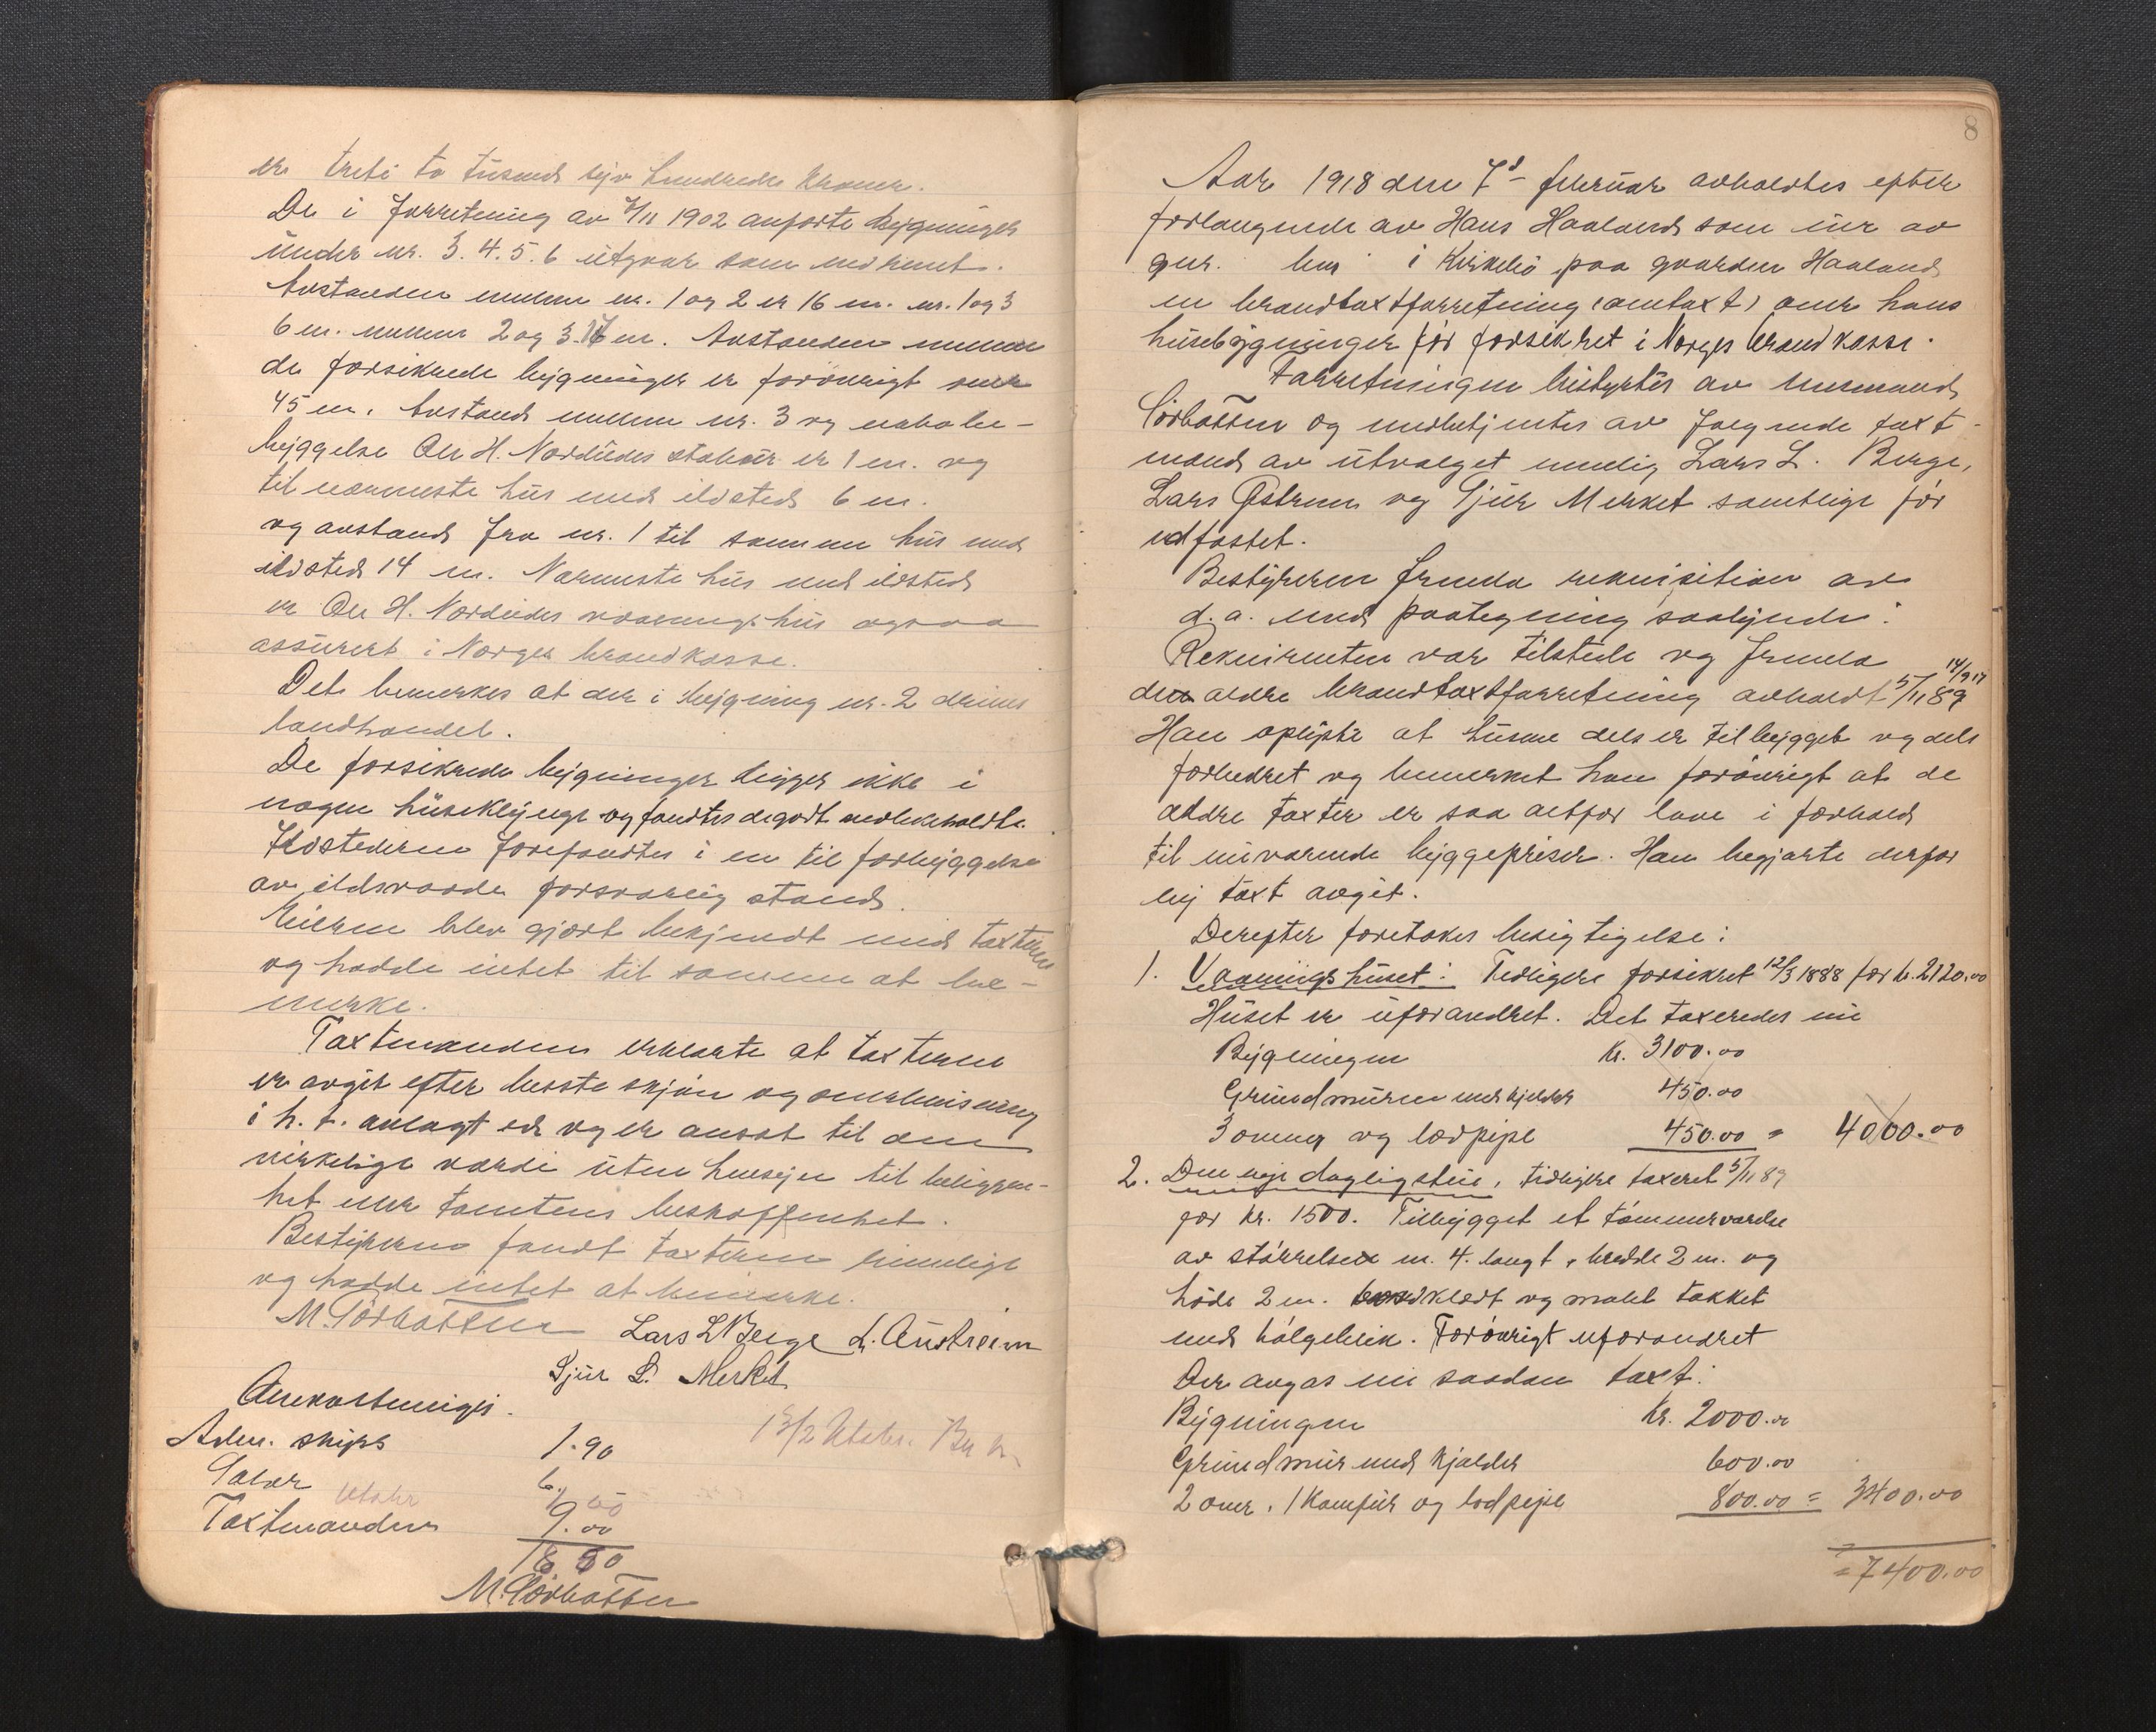 er treti to tusend syv hundrede kroner.
De i forretning av 7/11 1902 anførte bygninger
under nr. 3. 4. 5. 6 utgaar som nedrevnet.
Avstanden mellem nr. 1 og 2 er 16 m. nr. 1 og 3
6 m. mellem 2 og 3. 17 m. Avstanden mellem
de forsikrede bygninger er forøvrigt over
45 m. Avstand mellem nr. 3 og nabobe-
byggelse Ole H. Nordeides stabur er 1 m. og
til nærmeste hus med ildsted 6 m.
og avstand fra nr. 1 til samme hus med
ildsted 14 m. Nærmeste hus med ildsted
er Ole H. Nordeides vaaningshus ogsaa
assurert i Norges brandkasse.
Det bemerkes at der i bygning nr. 2 drives
landhandel.
De forsikrede bygninger ligger ikke i
nogen huseklynge og fandtes de godt vedlikeholdte.
Ildstederne forefandtes i en til forbyggelse
av ildsvaade forsvarlig stand.
Eieren blev gjort bekjendt med taxterne
og hadde intet til samme at be-
merke.
Taxtmændene erklærte at taxterne
er avgit efter beste skjøn og overbevisning
i h. t. avlagt ed og er ansat til den
virkelige værdi uten hensyn til beliggen-
het eller tomtens beskaffenhet.
Bestyreren fandt taxterne rimelige
og hadde intet at bemerke.
M. Sørbotten Lars L Berge L. Austreim
Sjur L. Merket
Omkostninger.
Adm. skyss 1.90
Salær 6.
Taxtmændene 9.00
M. Sørbotten
8
Aar 1918 den 7d- februar avholdtes efter
forlangende av Hans Haaland som eier av
gnr. bnr i Kirkebø paa gaarden Haaland
en brandtaxtforretning (omtaxt) over hans
husebygninger før forsikret i Norges brandkasse.
Forretningen bestyrtes av lensmand
Sørbotten og medbetjentes av følgende taxt-
mænd av utvalget nemlig Lars L. Berge,
Lars Østrem og Sjur Merket samtlige før
edfæstet.
Bestyreren fremla rekvisition av
d. a. med paategning saalydende:
Rekvirenten var tilstede og fremla
den ældre brandtaxtforretning avholdt 5/11 89 14/9 17
Han oplyste at husene dels er tilbygget og dels
forbedret og bemerket han forøvrigt at de
ældre taxter er saa altfor lave i forhold
til nuværende byggepriser. Han begjærte derfor
ny taxt avgit.
Derefter foretokes besigtigelse:
1. Vaaningshuset: Tidligere forsikret 12/3 1888 for kr. 2120.00
Huset er uforandret. Det taxeredes nu
Bygningen Kr. 3100.00
Grundmuren med kjelder 450.00
3 ovner og lodpipe 450.00 = 4000.00
2. Den nye dagligstue, tidligere taxeret 5/11 89
for kr. 1500. Tilbygget et tømmerværelse
av størrelse m. 4. langt, bredde 2 m. og
høide 2 m. bordklædt og malet takket
med bølgeblik. Forøvrigt uforandret
Der avgas nu saadan taxt:
Bygningen Kr. 2000.00
Grundmur med kjelder 600.00
2 ovner, 1 komfur og lodpipe 800.00 = 3400.00
= 7400.00